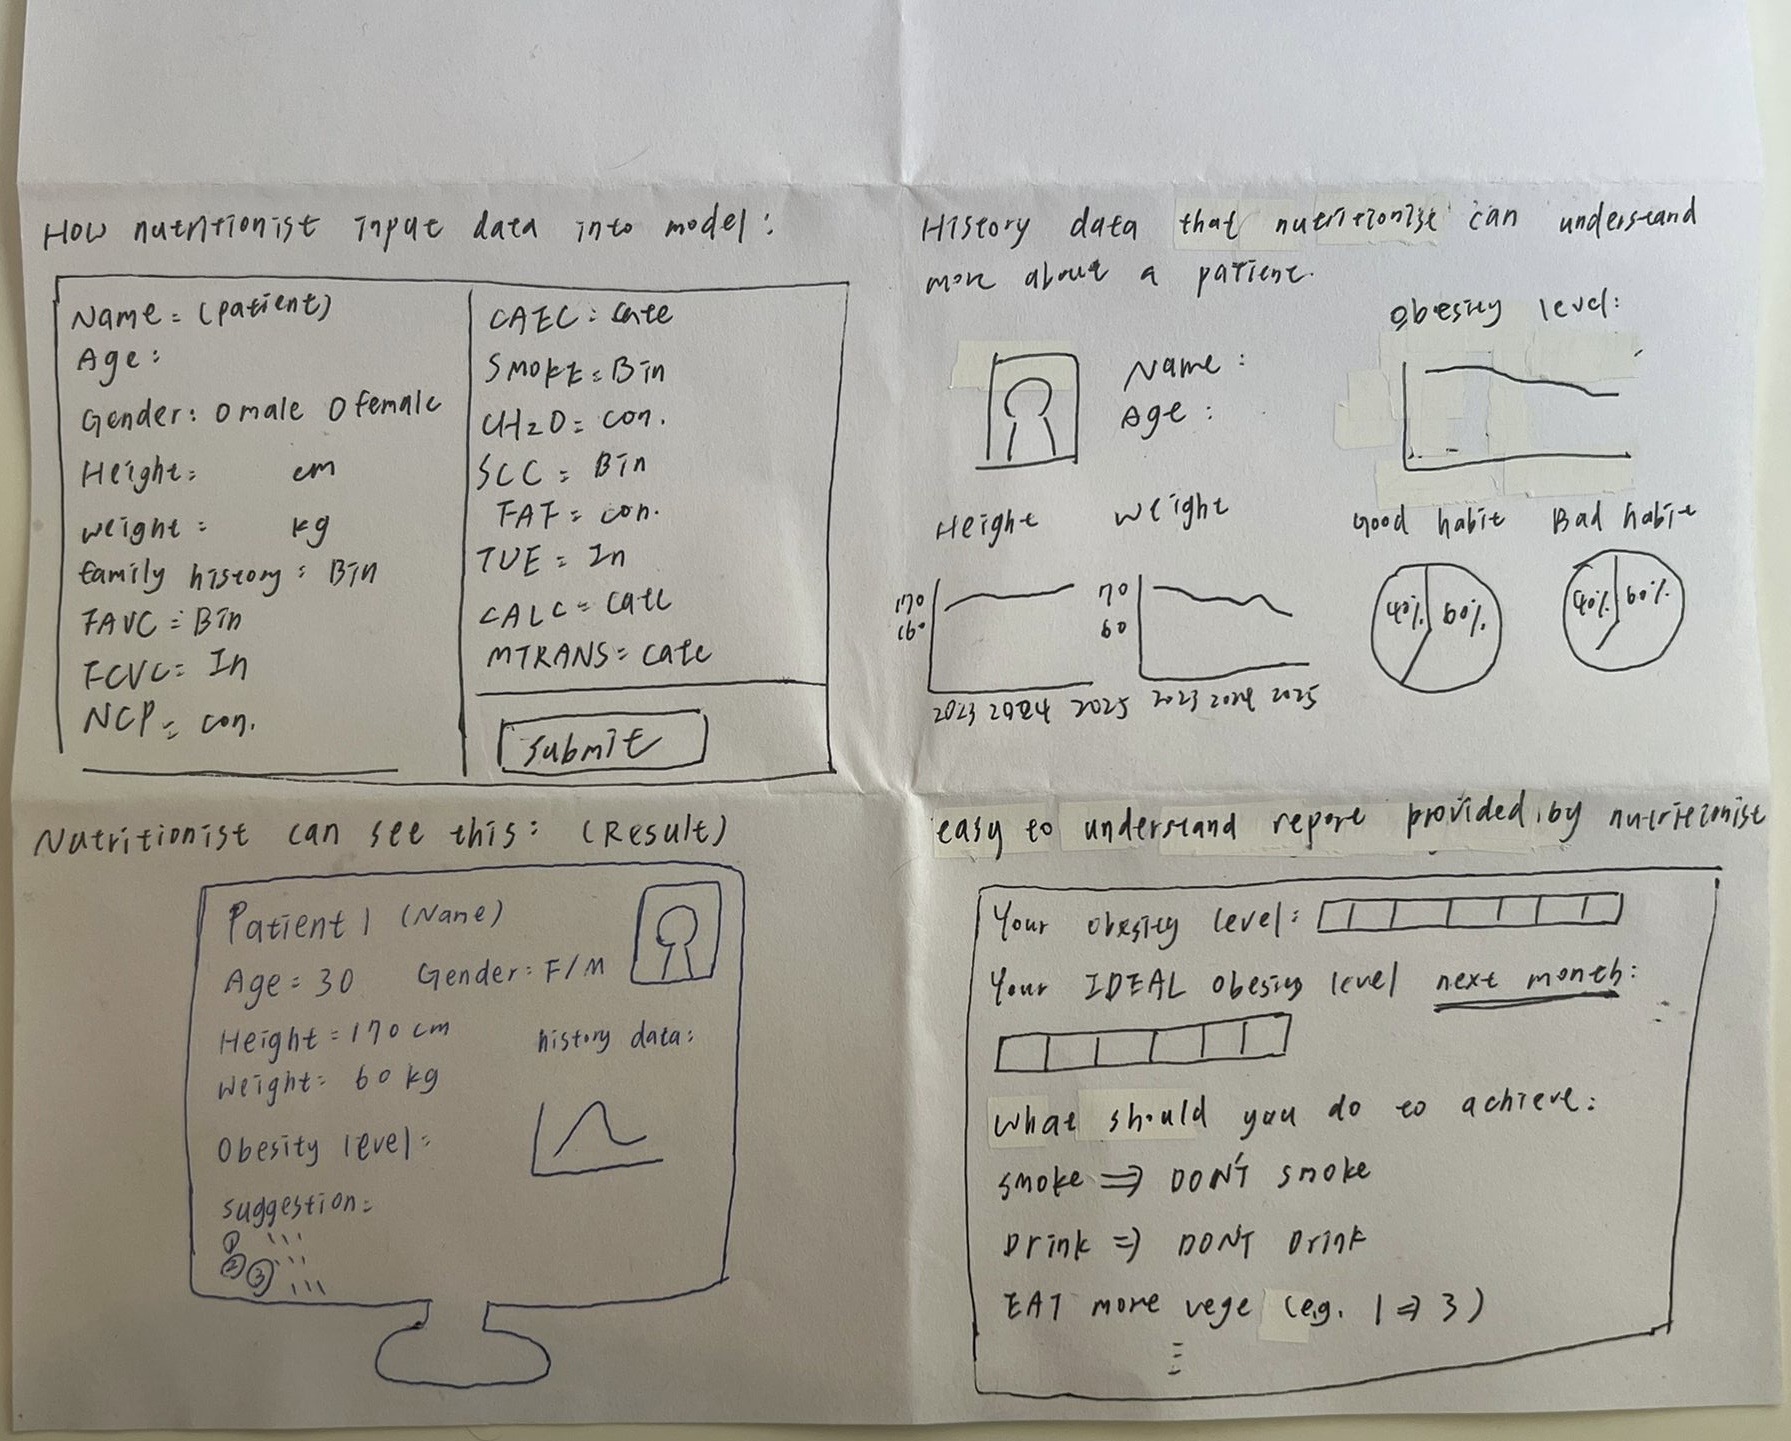 How nutritionist input data into model:
Name = (patient)
Age:
Gender: O male O female
Height: cm
weight: kg
family history: Bin
FAVC = Bin
FCVC = In
NCP = con.
CAEC: cate
Smoke = Bin
CH2O = con.
SCC = Bin
FAF = con.
TUE = In
CALC = cate
MTRANS = cate
Submit
History data that nutritionist can understand
more about a patient.
Obesity level:
Name:
Age:
Height
Weight
170
160
2023 2024 2025
70
60
2023 2024 2025
Good habit
Bad habit
40% 60%
40% 60%
Nutritionist can see this: (Result)
Patient 1 (Name)
Age = 30 Gender: F/M
Height = 170 cm
weight: 60 kg
history data:
Obesity level:
suggestion:
①
②
③
easy to understand report provided by nutritionist
Your obesity level:
Your IDEAL obesity level next month:
what should you do to achieve:
smoke ⇒ DON'T smoke
Drink ⇒ DON'T Drink
EAT more vege (e.g. 1 ⇒ 3)